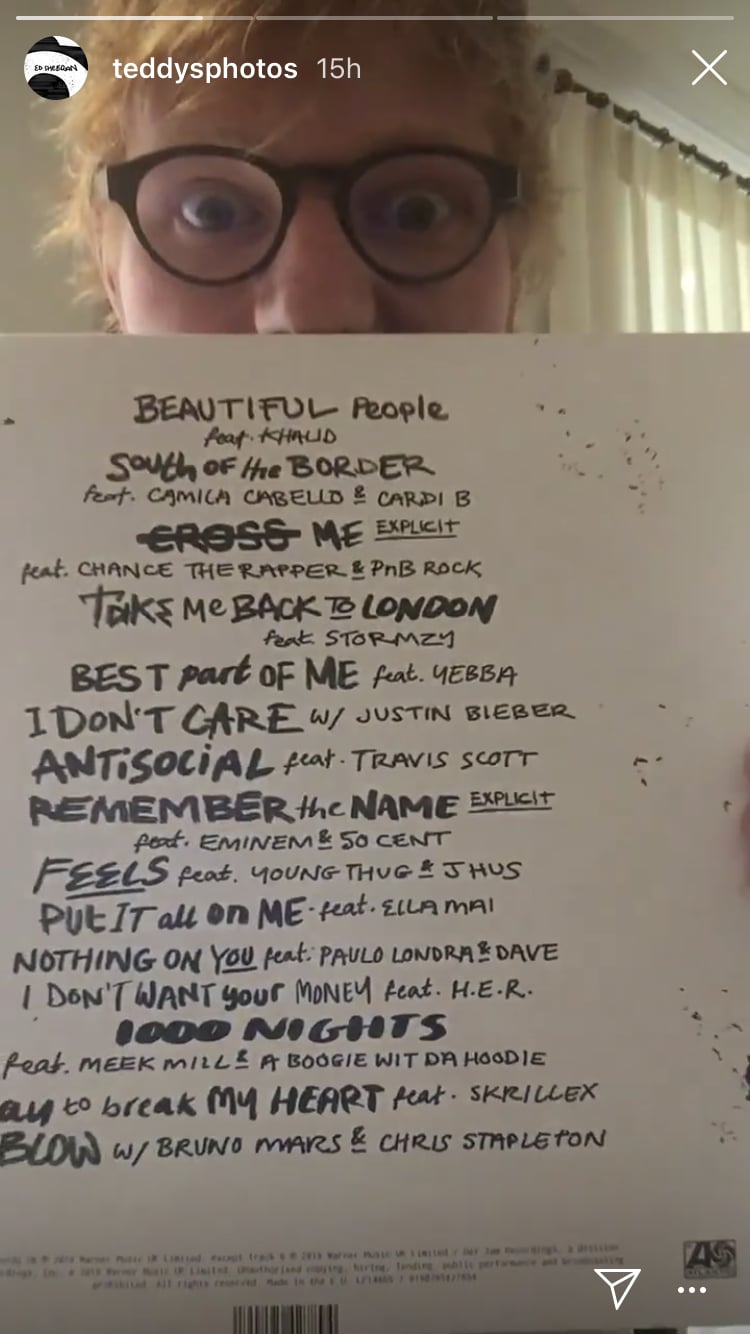 ED SHEERAN
teddysphotos 15h
BEAUTIFUL People
feat. KHALID
South OF the BORDER
feat. CAMILA CABELLO & CARDI B
CROSS ME EXPLICIT
feat. CHANCE THE RAPPER & PnB ROCK
TAKE Me BACK TO LONDON
feat. STORMZY
BEST part OF ME feat. YEBBA
I DON'T CARE w/ JUSTIN BIEBER
ANTiSOCiAL feat. TRAVIS SCOTT
REMEMBER the NAME EXPLICIT
feat. EMINEM & 50 CENT
FEELS feat. YOUNG THUG & J HUS
PUt IT all on ME feat. ELLA MAI
NOTHING ON YOU feat. PAULO LONDRA & DAVE
I DON'T WANT your MONEY feat. H.E.R.
1000 NIGHTS
feat. MEEK MILL & A BOOGIE WIT DA HOODIE
ay to break MY HEART feat. SKRILLEX
BLOW w/ BRUNO MARS & CHRIS STAPLETON
2019 Warner Music UK Limited. Except track 6 2019 Warner Music UK Limited / Def Jam Recordings, a division
2019 Warner Music UK Limited. Unauthorised copying, hiring, lending, public performance and broadcasting
prohibited. All rights reserved. Made in the E.U.